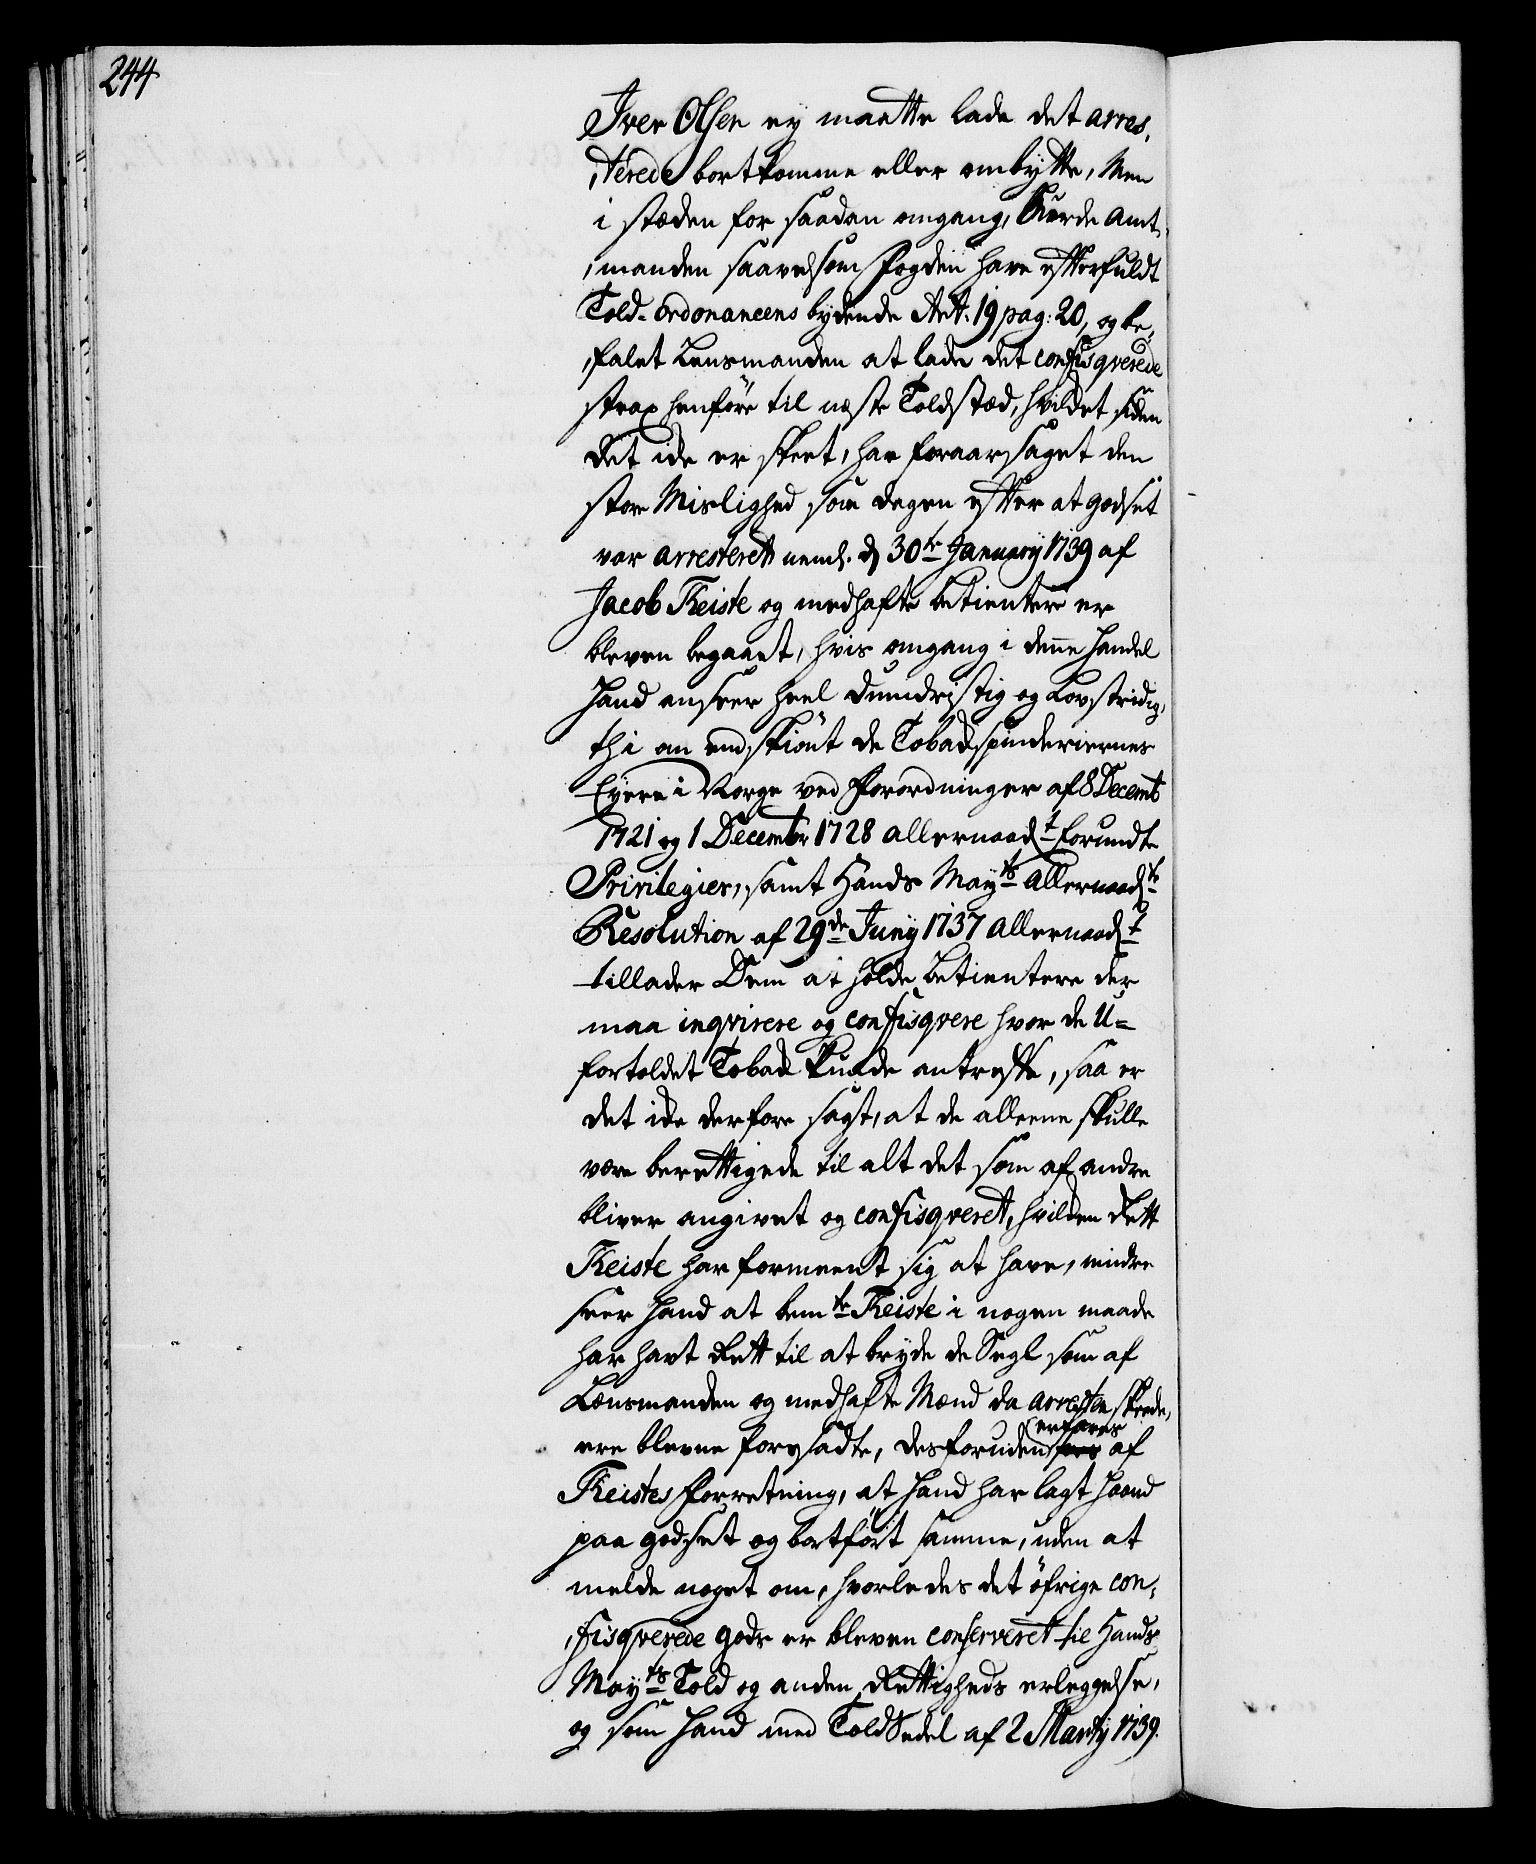 244
Iver Olsen ej maatte lade det arres,
,terede bortkomme eller ombytte, Men
i stæden for saadan omgang, burde Amt,
,manden saavelsom Fogden have efterfuldt
Told-Ordonancens bydende Art: 19 pag: 20, og be,
,falet Lensmanden at lade det confisqverede
strax henføre til næste Toldstæd, hvilket siden
det icke er skeet, har foraarsaget den
store Mislighed som dagen efter at godset
var arresteret neml. d 30te January 1739 af
Jacob Teiste og medhafte betientere er
bleven begaaet, hvis omgang i denne handel
hand anseer heel dumdristig og Lovstridig,
thi om endskiönt de Tobackspinderiernes
Eyere i Norge ved Forordninger af 8 Decemb
1721 og 1 Decembr 1728 allernaadt forundte
Privilegier, samt Hands Mayts Allernaadte
Resolution af 29de Juny 1737 allernaadt
tillader Dem at holde betientere der
maa inqvirere og confisqvere hvor de U=
fortoldet Toback kunde antreffe, saa er
det icke derfore sagt, at de alleene skulle
være berettigede til alt det som af andre
bliver angivet og confisqveret, hvilken Rett
Teiste har formeent sig at have, mindre
seer hand at bemte Teiste i nogen maade
har havt Rett til at bryde de Segl som af
Lænsmanden og medhafte Mænd da arresten skeede,
ere blevne forsadte, desforuden erfares af
Teistes Forretning, at hand har lagt haand
paa godset og bortført samme, uden at
melde noget om, hvorledes det öfrige con,
,fisqverede gods er bleven conserveret til Hands
Mayts Told og anden Rettigheds erleggelse,
og som hand med ToldSedel af 2 Marty 1739.